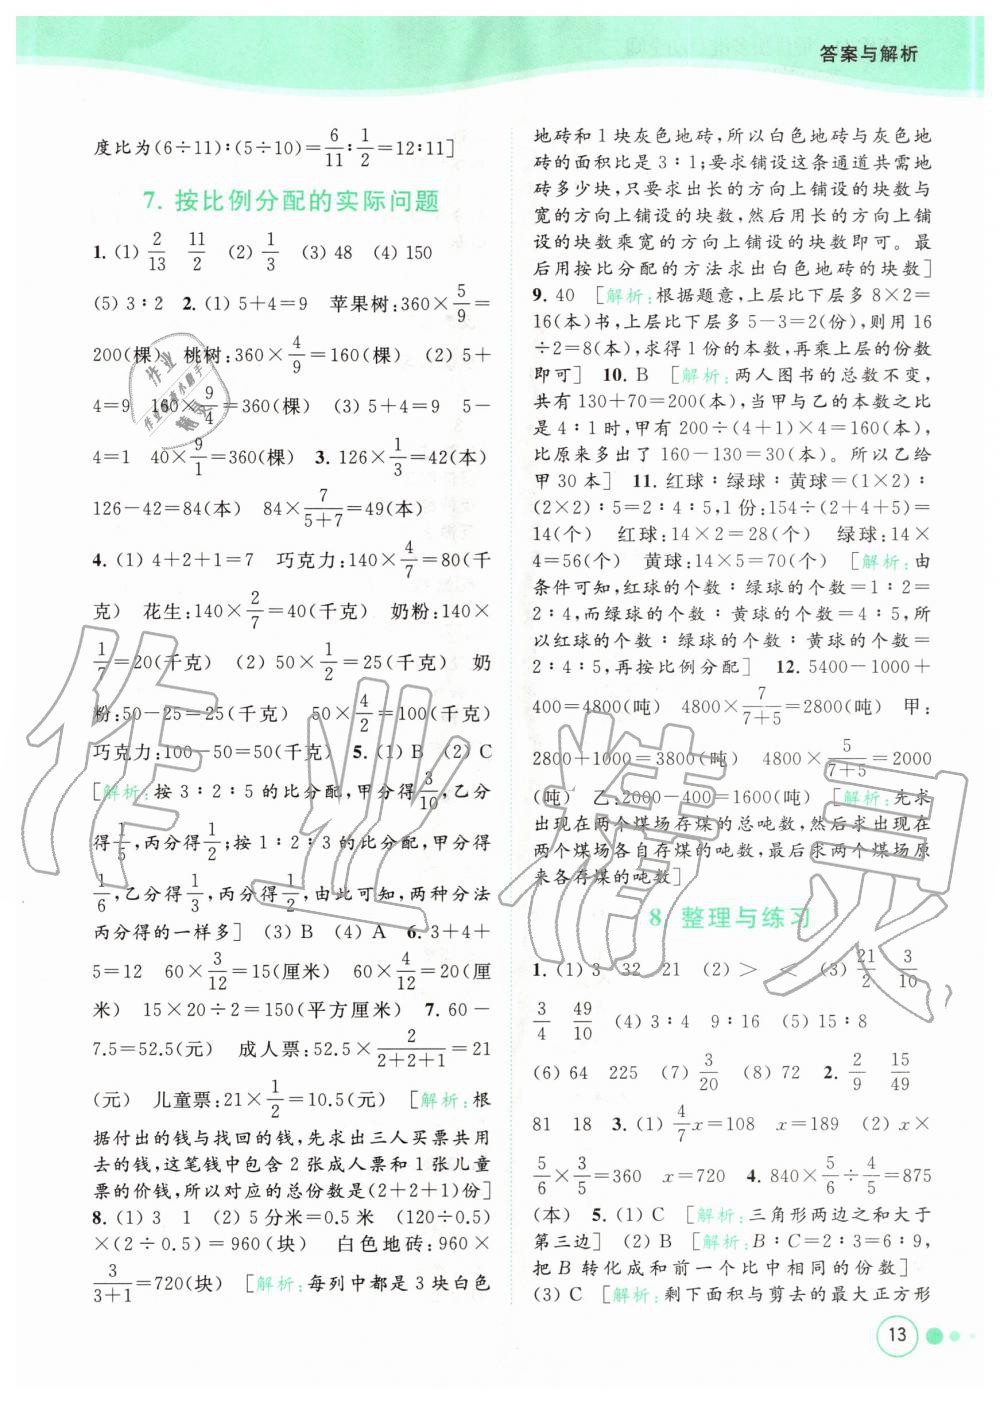 答案与解析
度比为(6÷11)∶(5÷10)=6/11∶1/2=12∶11]
7. 按比例分配的实际问题
1. (1) 2/13 11/2 (2) 1/3 (3) 48 (4) 150
(5) 3∶2 2. (1) 5+4=9 苹果树:360×5/9=
200(棵) 桃树:360×4/9=160(棵) (2) 5+
4=9 160×9/4=360(棵) (3) 5+4=9 5-
4=1 40×9/1=360(棵) 3. 126×1/3=42(本)
126-42=84(本) 84×7/(5+7)=49(本)
4. (1) 4+2+1=7 巧克力:140×4/7=80(千
克) 花生:140×2/7=40(千克) 奶粉:140×
1/7=20(千克) (2) 50×1/2=25(千克) 奶
粉:50-25=25(千克) 50×4/2=100(千克)
巧克力:100-50=50(千克) 5. (1) B (2) C
[解析:按 3∶2∶5 的比分配,甲分得3/10,乙分
得1/5,丙分得1/2;按 1∶2∶3 的比分配,甲分得
1/6,乙分得1/3,丙分得1/2,由此可知,两种分法
丙分得的一样多] (3) B (4) A 6. 3+4+
5=12 60×3/12=15(厘米) 60×4/12=20(厘
米) 15×20÷2=150(平方厘米) 7. 60-
7.5=52.5(元) 成人票:52.5×2/(2+2+1)=21
(元) 儿童票:21×1/2=10.5(元) [解析:根
据付出的钱与找回的钱,先求出三人买票共用
去的钱,这笔钱中包含 2 张成人票和 1 张儿童
票的价钱,所以对应的总份数是(2+2+1)份]
8. (1) 3 1 (2) 5 分米=0.5 米 (120÷0.5)
×(2÷0.5)=960(块) 白色地砖:960×
3/(3+1)=720(块) [解析:每列中都是 3 块白色
地砖和 1 块灰色地砖,所以白色地砖与灰色地
砖的面积比是 3∶1;要求铺设这条通道共需地
砖多少块,只要求出长的方向上铺设的块数与
宽的方向上铺设的块数,然后用长的方向上铺
设的块数乘宽的方向上铺设的块数即可。最
后用按比分配的方法求出白色地砖的块数]
9. 40 [解析:根据题意,上层比下层多 8×2=
16(本)书,上层比下层多 5-3=2(份),则用 16
÷2=8(本),求得 1 份的本数,再乘上层的份数
即可] 10. B [解析:两人图书的总数不变,
共有 130+70=200(本),当甲与乙的本数之比
是 4∶1 时,甲有 200÷(4+1)×4=160(本),
比原来多出了 160-130=30(本)。所以乙给
甲 30 本] 11. 红球∶绿球∶黄球=(1×2)∶
(2×2)∶5=2∶4∶5,1 份:154÷(2+4+5)=
14(个) 红球:14×2=28(个) 绿球:14×
4=56(个) 黄球:14×5=70(个) [解析:由
条件可知,红球的个数∶绿球的个数=1∶2=
2∶4,而绿球的个数∶黄球的个数=4∶5,所
以红球的个数∶绿球的个数∶黄球的个数=
2∶4∶5,再按比例分配] 12. 5400-1000+
400=4800(吨) 4800×7/(7+5)=2800(吨) 甲:
2800+1000=3800(吨) 4800×5/(7+5)=2000
(吨) 乙:2000-400=1600(吨) [解析:先求
出现在两个煤场存煤的总吨数,然后求出现在
两个煤场各自存煤的吨数,最后求两个煤场原
来各存煤的吨数]
8 整理与练习
1. (1) 3 32 21 (2) > < (3) 21/2 3/10
3/4 49/10 (4) 3∶4 9∶16 (5) 15∶8
(6) 64 225 (7) 3/20 (8) 72 2. 2/9 15/49
81 18 3. (1) 4/7x=108 x=189 (2) x×
5/6×3/5=360 x=720 4. 840×5/6÷4/5=875
(本) 5. (1) C [解析:三角形两边之和大于
第三边] (2) B [解析:B∶C=2∶3=6∶9,
把 B 转化成和前一个比中相同的份数]
(3) C [解析:剩下面积与剪去的最大正方形
13
作业精灵